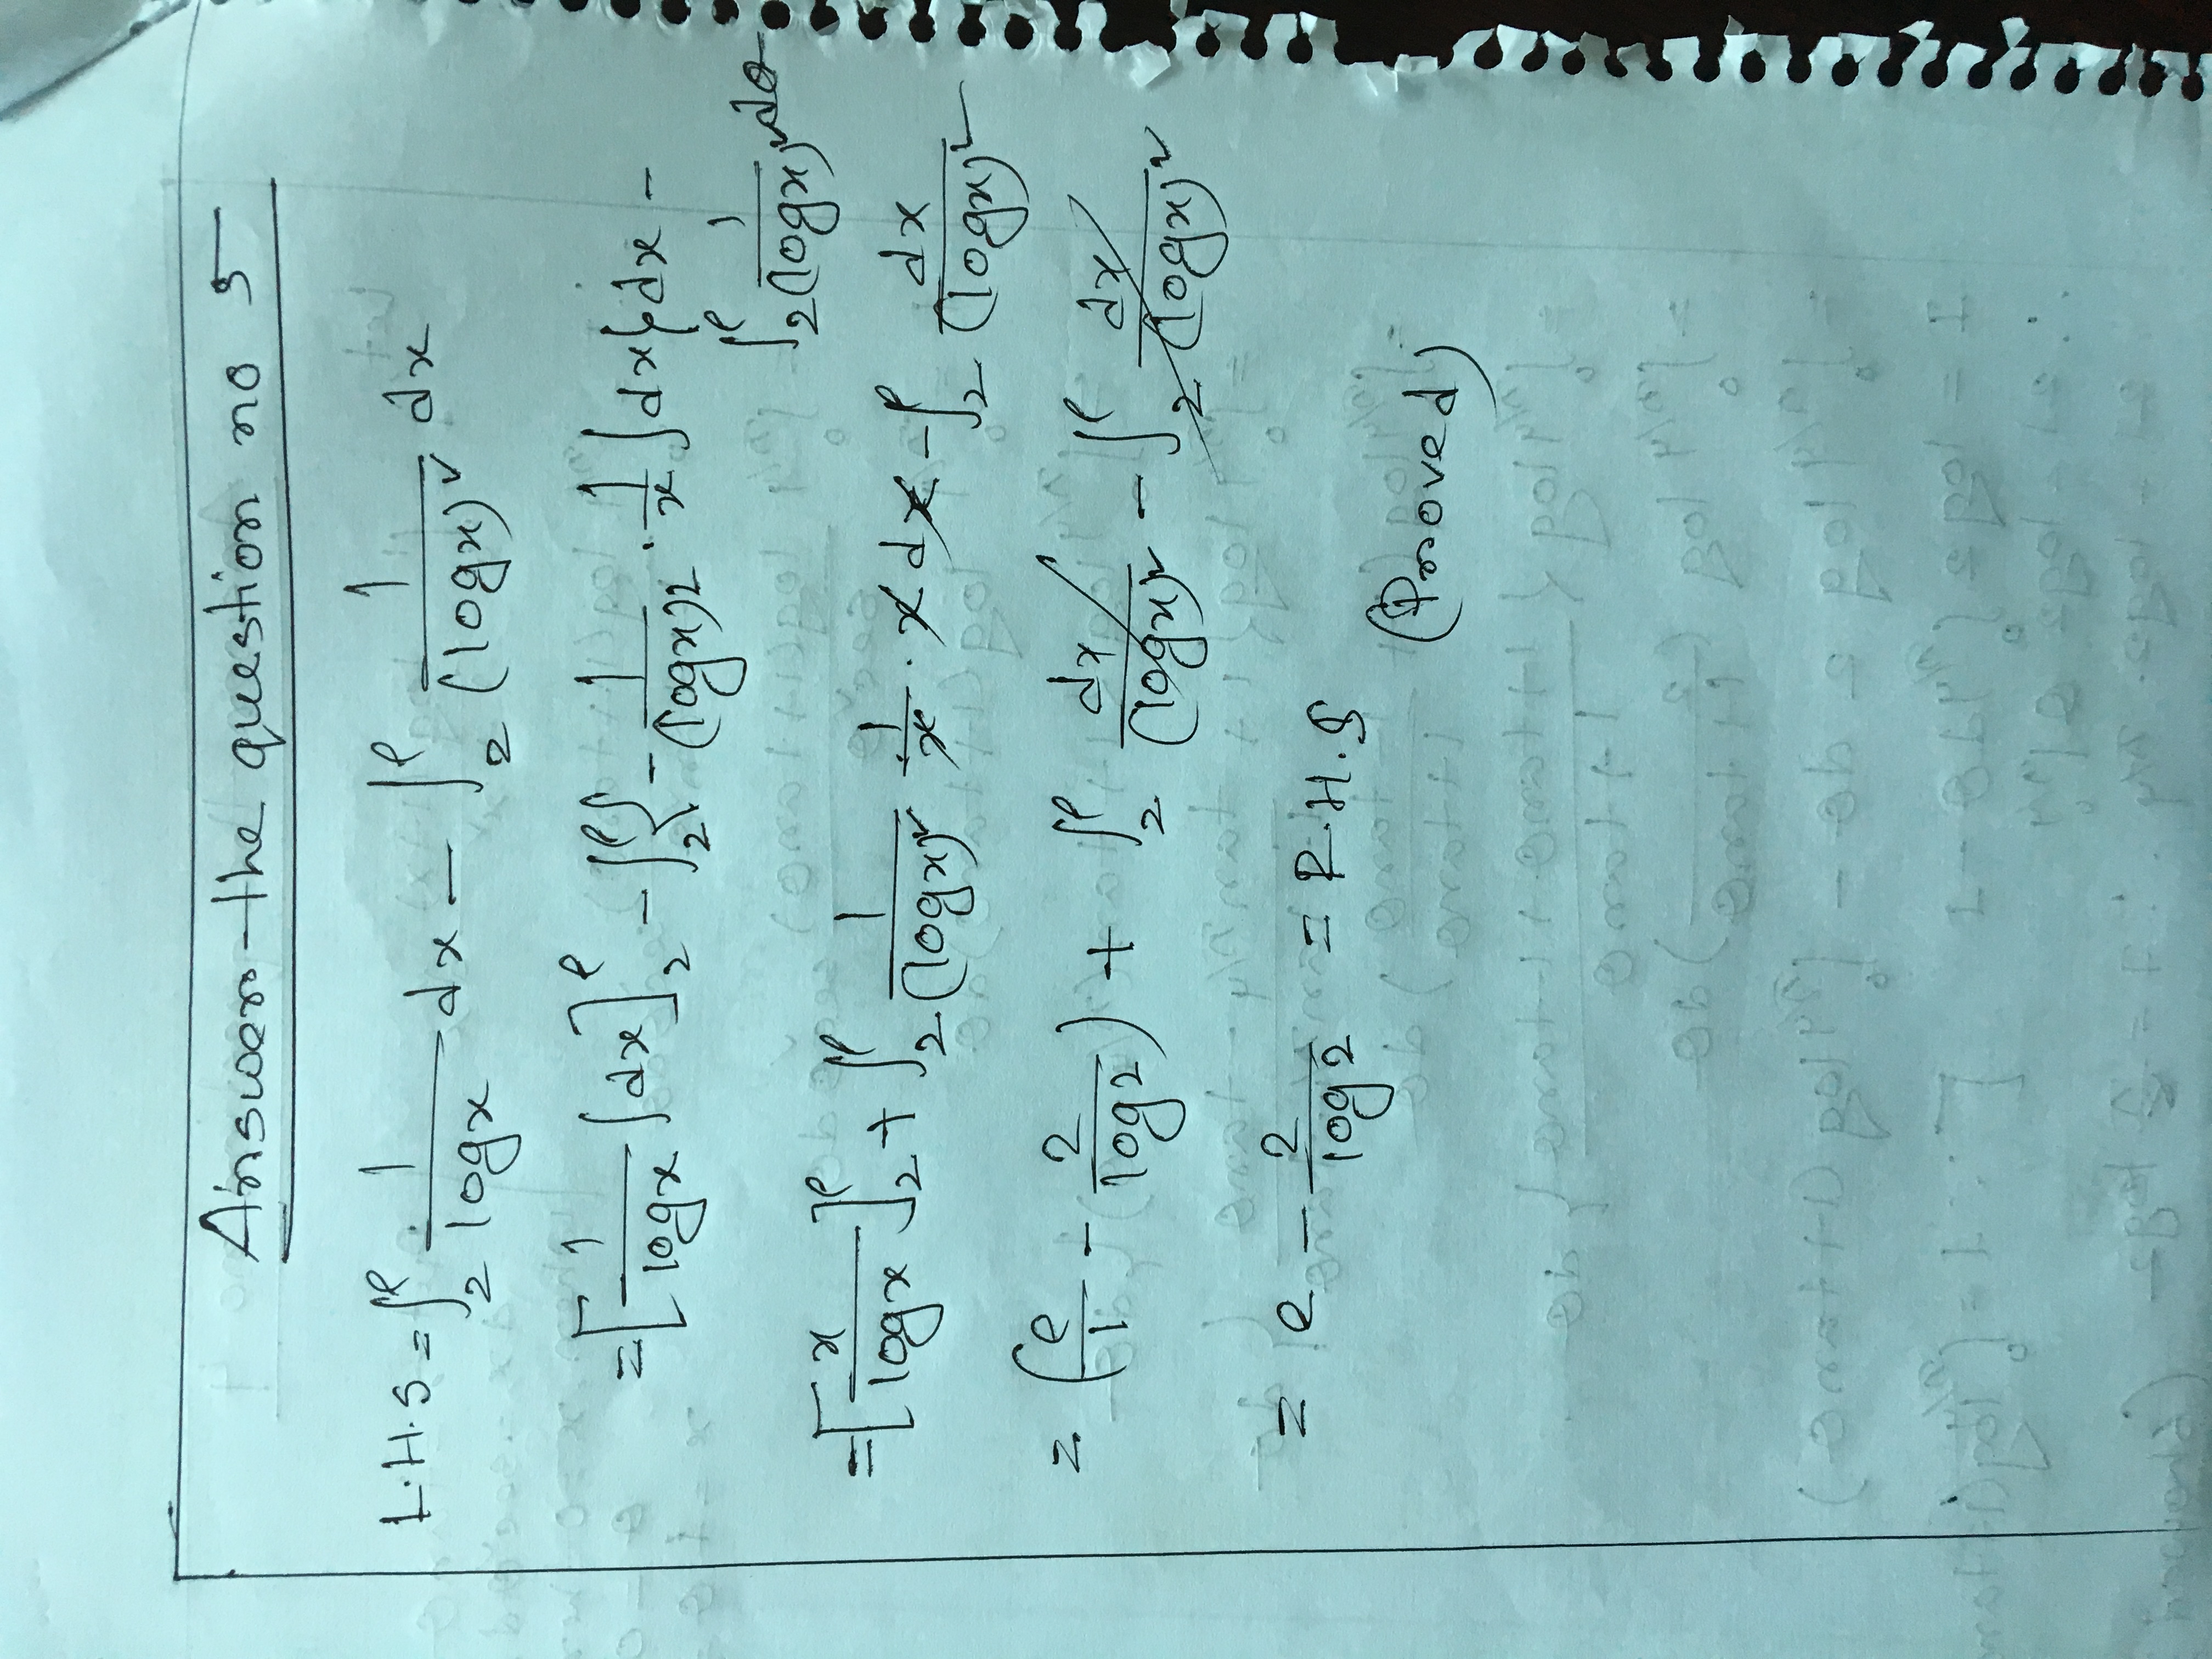 Answer the question no 5
L.H.S = ∫₂ᵉ 1/logx dx – ∫₂ᵉ 1/(logx)² dx
= [1/logx ∫dx]₂ᵉ - ∫₂ᵉ{- 1/(logx)2 · 1/x ∫dx}dx -
∫₂ᵉ 1/(logx)² dθ
= [x/logx]₂ᵉ + ∫₂ᵉ 1/(logx)² 1/x · x dx - ∫₂ᵉ dx/(logx)²
= (e/1 - 2/log2) + ∫₂ᵉ dx/(logx)² - ∫₂ᵉ dx/(logx)²
= e - 2/log2 = R.H.S
(Proved)